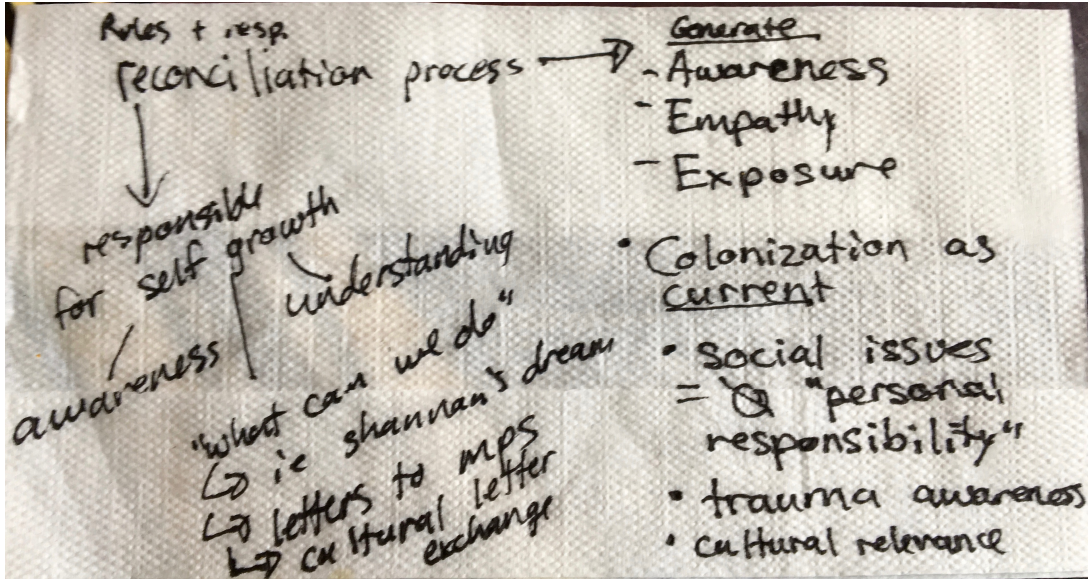 Roles + resp.
reconciliation process →
↓
responsible
for self growth
awareness
understanding
"what can we do"
↳ ie shannan's dream
↳ letters to mps
↳ cultural letter
exchange
Generate
- Awareness
- Empathy
- Exposure
• Colonization as
current
• social issues
= "personal
responsibility"
• trauma awareness
• cultural relevance